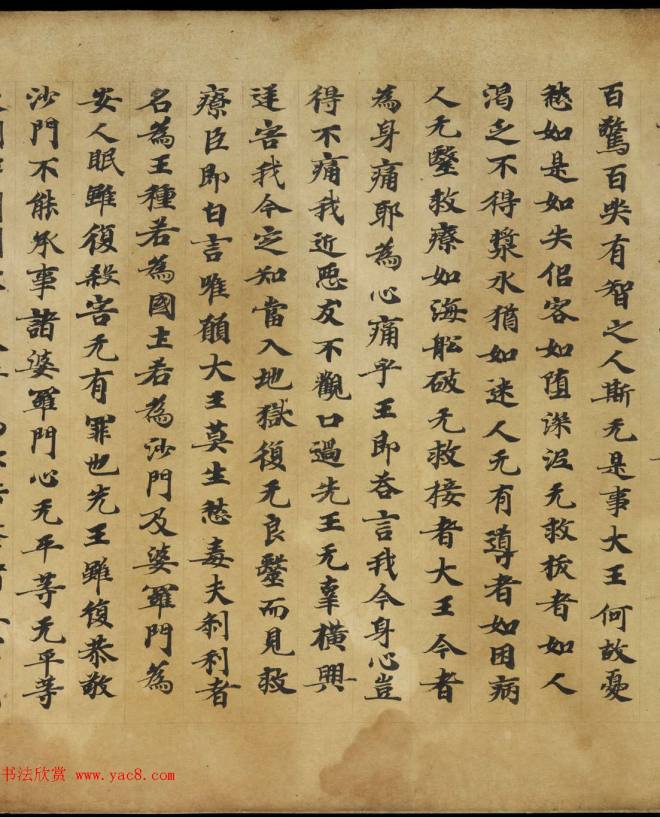 百驚百喚有智之人斯无是事大王何故憂
愁如是如失侶客如堕深泥无救拔者如人
渇乏不得漿水猶如迷人无有導者如困病
人无醫救療如海舩破无救接者大王今者
為身痛耶為心痛乎王即荅言我今身心豈
得不痛我近惡友不觀口過先王无辜横興
逆害我今定知當入地獄復无良醫而見救
療臣即白言唯願大王莫生愁毒夫刹利者
名為王種若為國主若為沙門及婆羅門為
安人民雖復殺害无有罪也先王雖復恭敬
沙門不能承事諸婆羅門心无平等无平等
书法欣赏 www.yac8.com